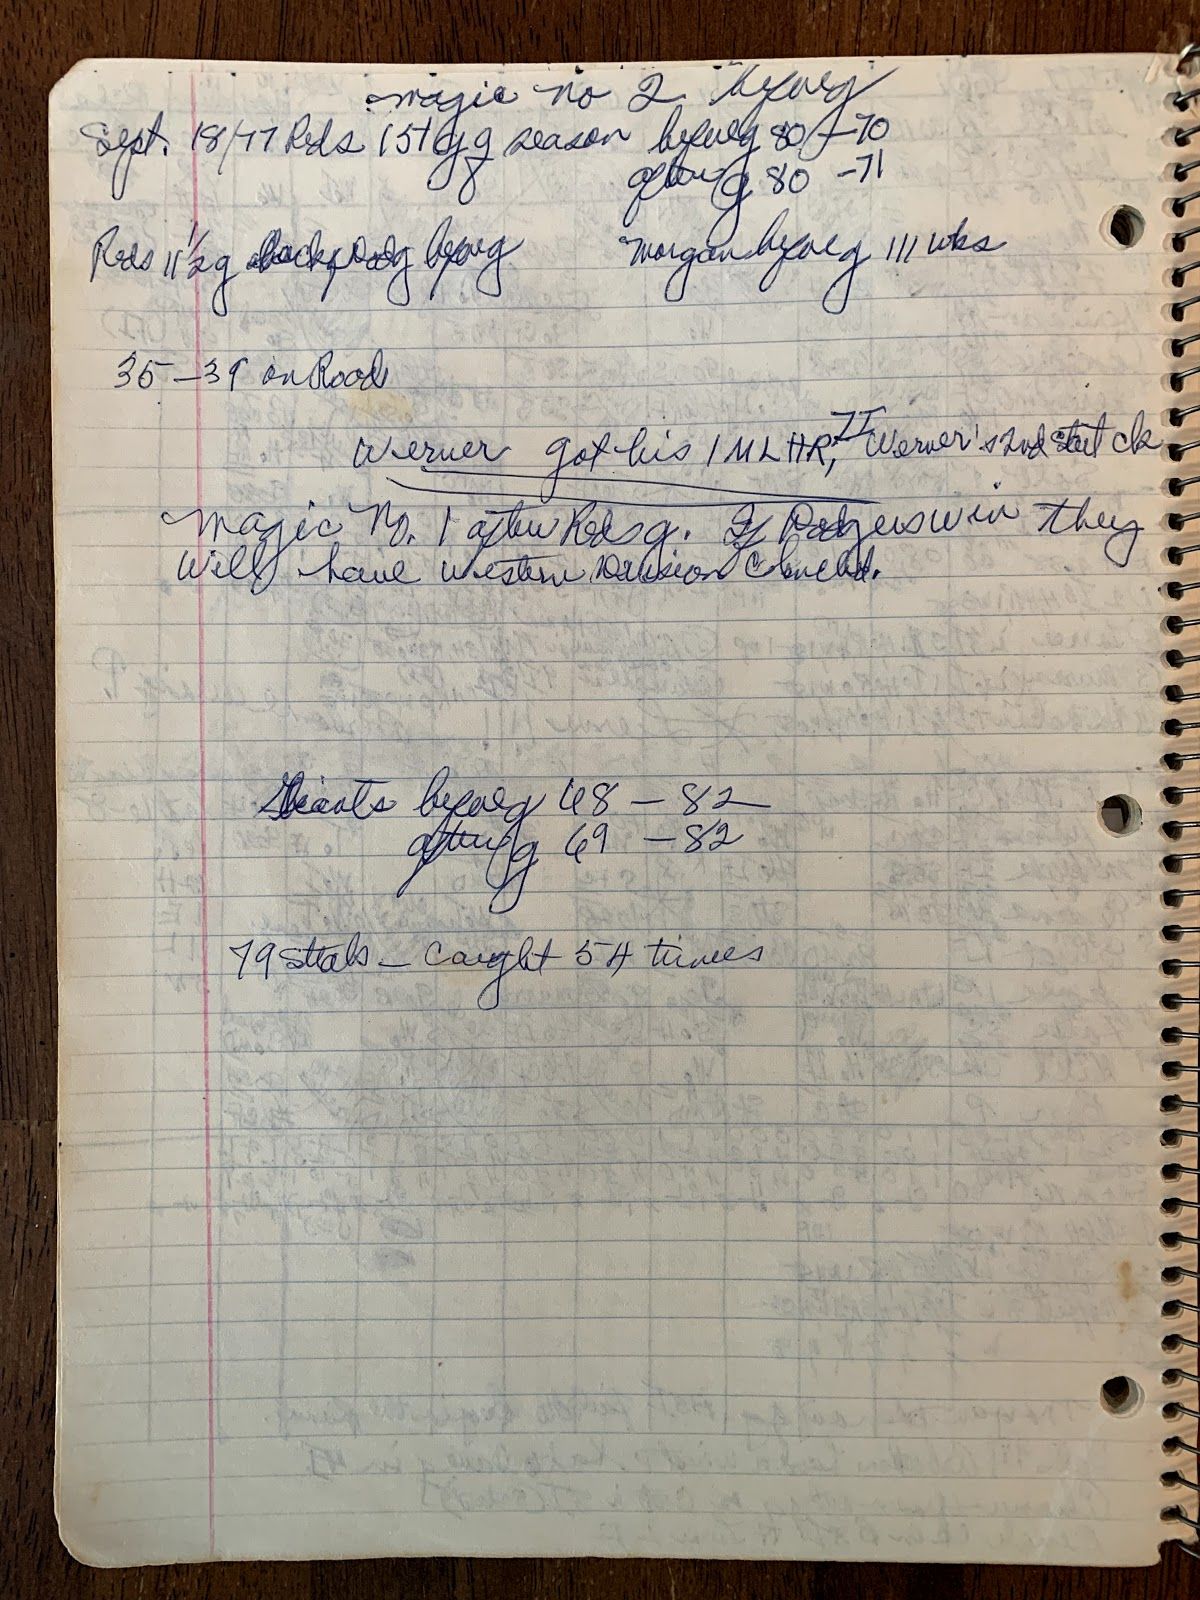 Magic no 2 before g
Sept. 18/77 Reds 151 g of season before g 80 -70
after g 80 -71
Reds 11 1/2 g back of Dodg before g Morgan before g 111 wks
35-39 on Road
Werner got his 1 ML HR, Werner's 2nd start ck
Magic No. 1 after Reds g. If Dodgers win they
will have Western Division clinched.
Giants before g 68 - 82
after g 69 - 82
79 steals - caught 54 times